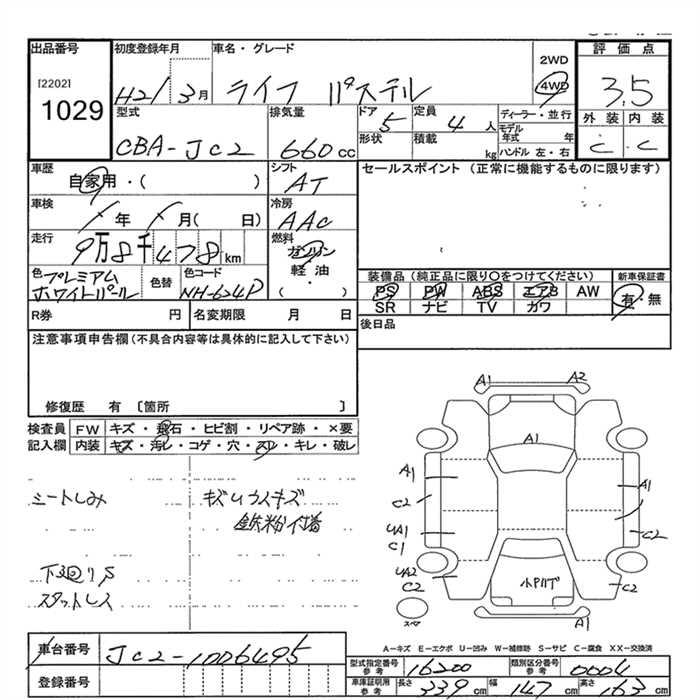 出品番号 初度登録年月 車名・グレード 評価点
[2202] 2WD
1029 H21 3月 ライフ パステル 4WD 3.5
型式 排気量 ドア 定員 ディーラー・並行 外装 内装
CBA-JC2 660cc 5 4人 モデル年式 年 C C
形状 積載 kg ハンドル 左・右
車歴 シフト セールスポイント (正常に機能するものに限ります)
自家用・( ) AT
車検 冷房
年 月( 日) AAC
走行 燃料
9万8千478km ガソリン
軽油
・( )
色 プレミアム 色替 色コード 装備品 (純正品に限り〇をつけてください) 新車保証書
ホワイトパール NH-624P PS PW ABS エアB AW 有・無
SR ナビ TV カワ
R券 円 名変期限 月 日 後日品
注意事項申告欄(不具合内容等は具体的に記入して下さい)
修復歴 有 〔箇所 〕
検査員 FW キズ・飛石・ヒビ割・リペア跡・×要
記入欄 内装 キズ・汚レ・コゲ・穴・スリ・キレ・破レ
A1 A2
A1
シートしみ キズ ウスキズ
鉄粉付着
A1 A1
C2
UA1 C2
C1
下回りS UA2 C2
スタットレス C2
小キハゲ
スペア A1
A-キズ E-エクボ U-凹み W-補修跡 S-サビ C-腐食 XX-交換済
車台番号 JC2-1006495
型式指定番号 参考 16200 類別区分番号 参考 0004
登録番号
車庫証明用 参考 長さ 339cm 幅 147cm 高さ 163cm